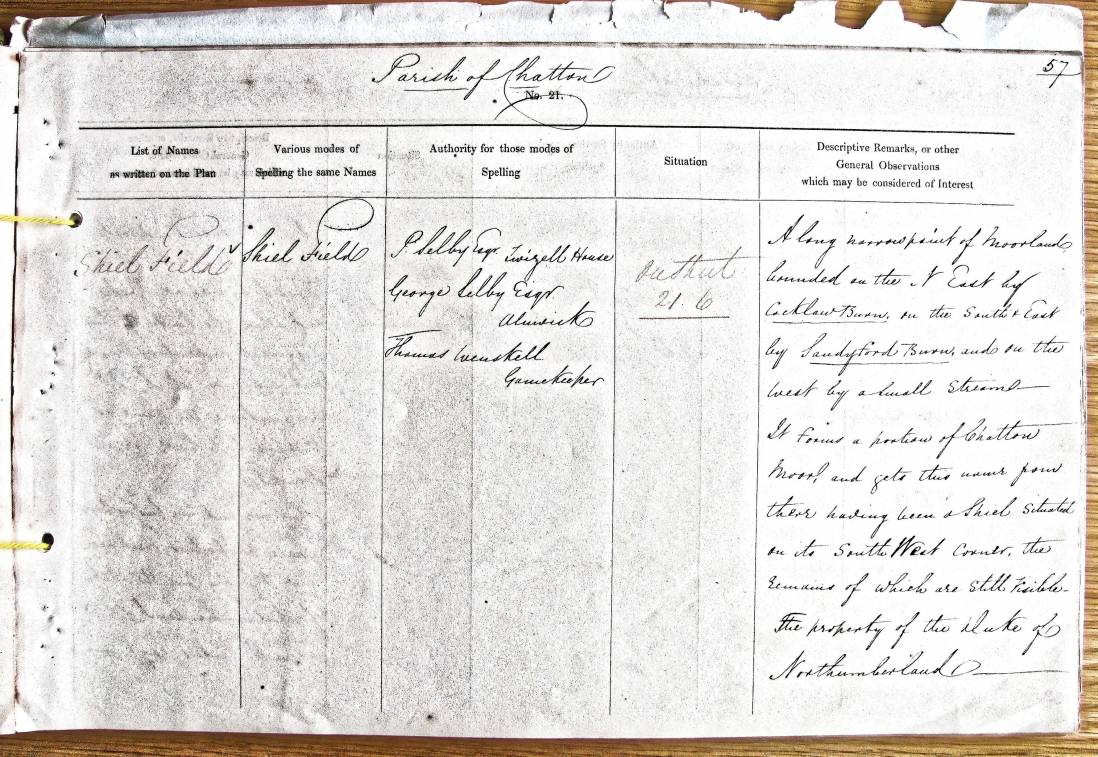 57
Parish of Chatton
No. 21.
List of Names
as written on the Plan
Various modes of
Spelling the same Names
Authority for those modes of
Spelling
Situation
Descriptive Remarks, or other
General Observations
which may be considered of Interest
Shiel Field
Shiel Field
P. Selby Esqr. Twizell House
George Selby Esqr
Alnwick
Thomas
Gamekeeper
21.6
A long narrow point of Moorland,
bounded on the N East by
Cocklaw Burn, on the South & East
by Sandyford Burn, and on the
West by a small Stream
It forms a portion of Chatton
Moor, and gets this name from
there having been a Shiel Situated
on its South West Corner, the
remains of which are Still Visible.
The property of the Duke of
Northumberland